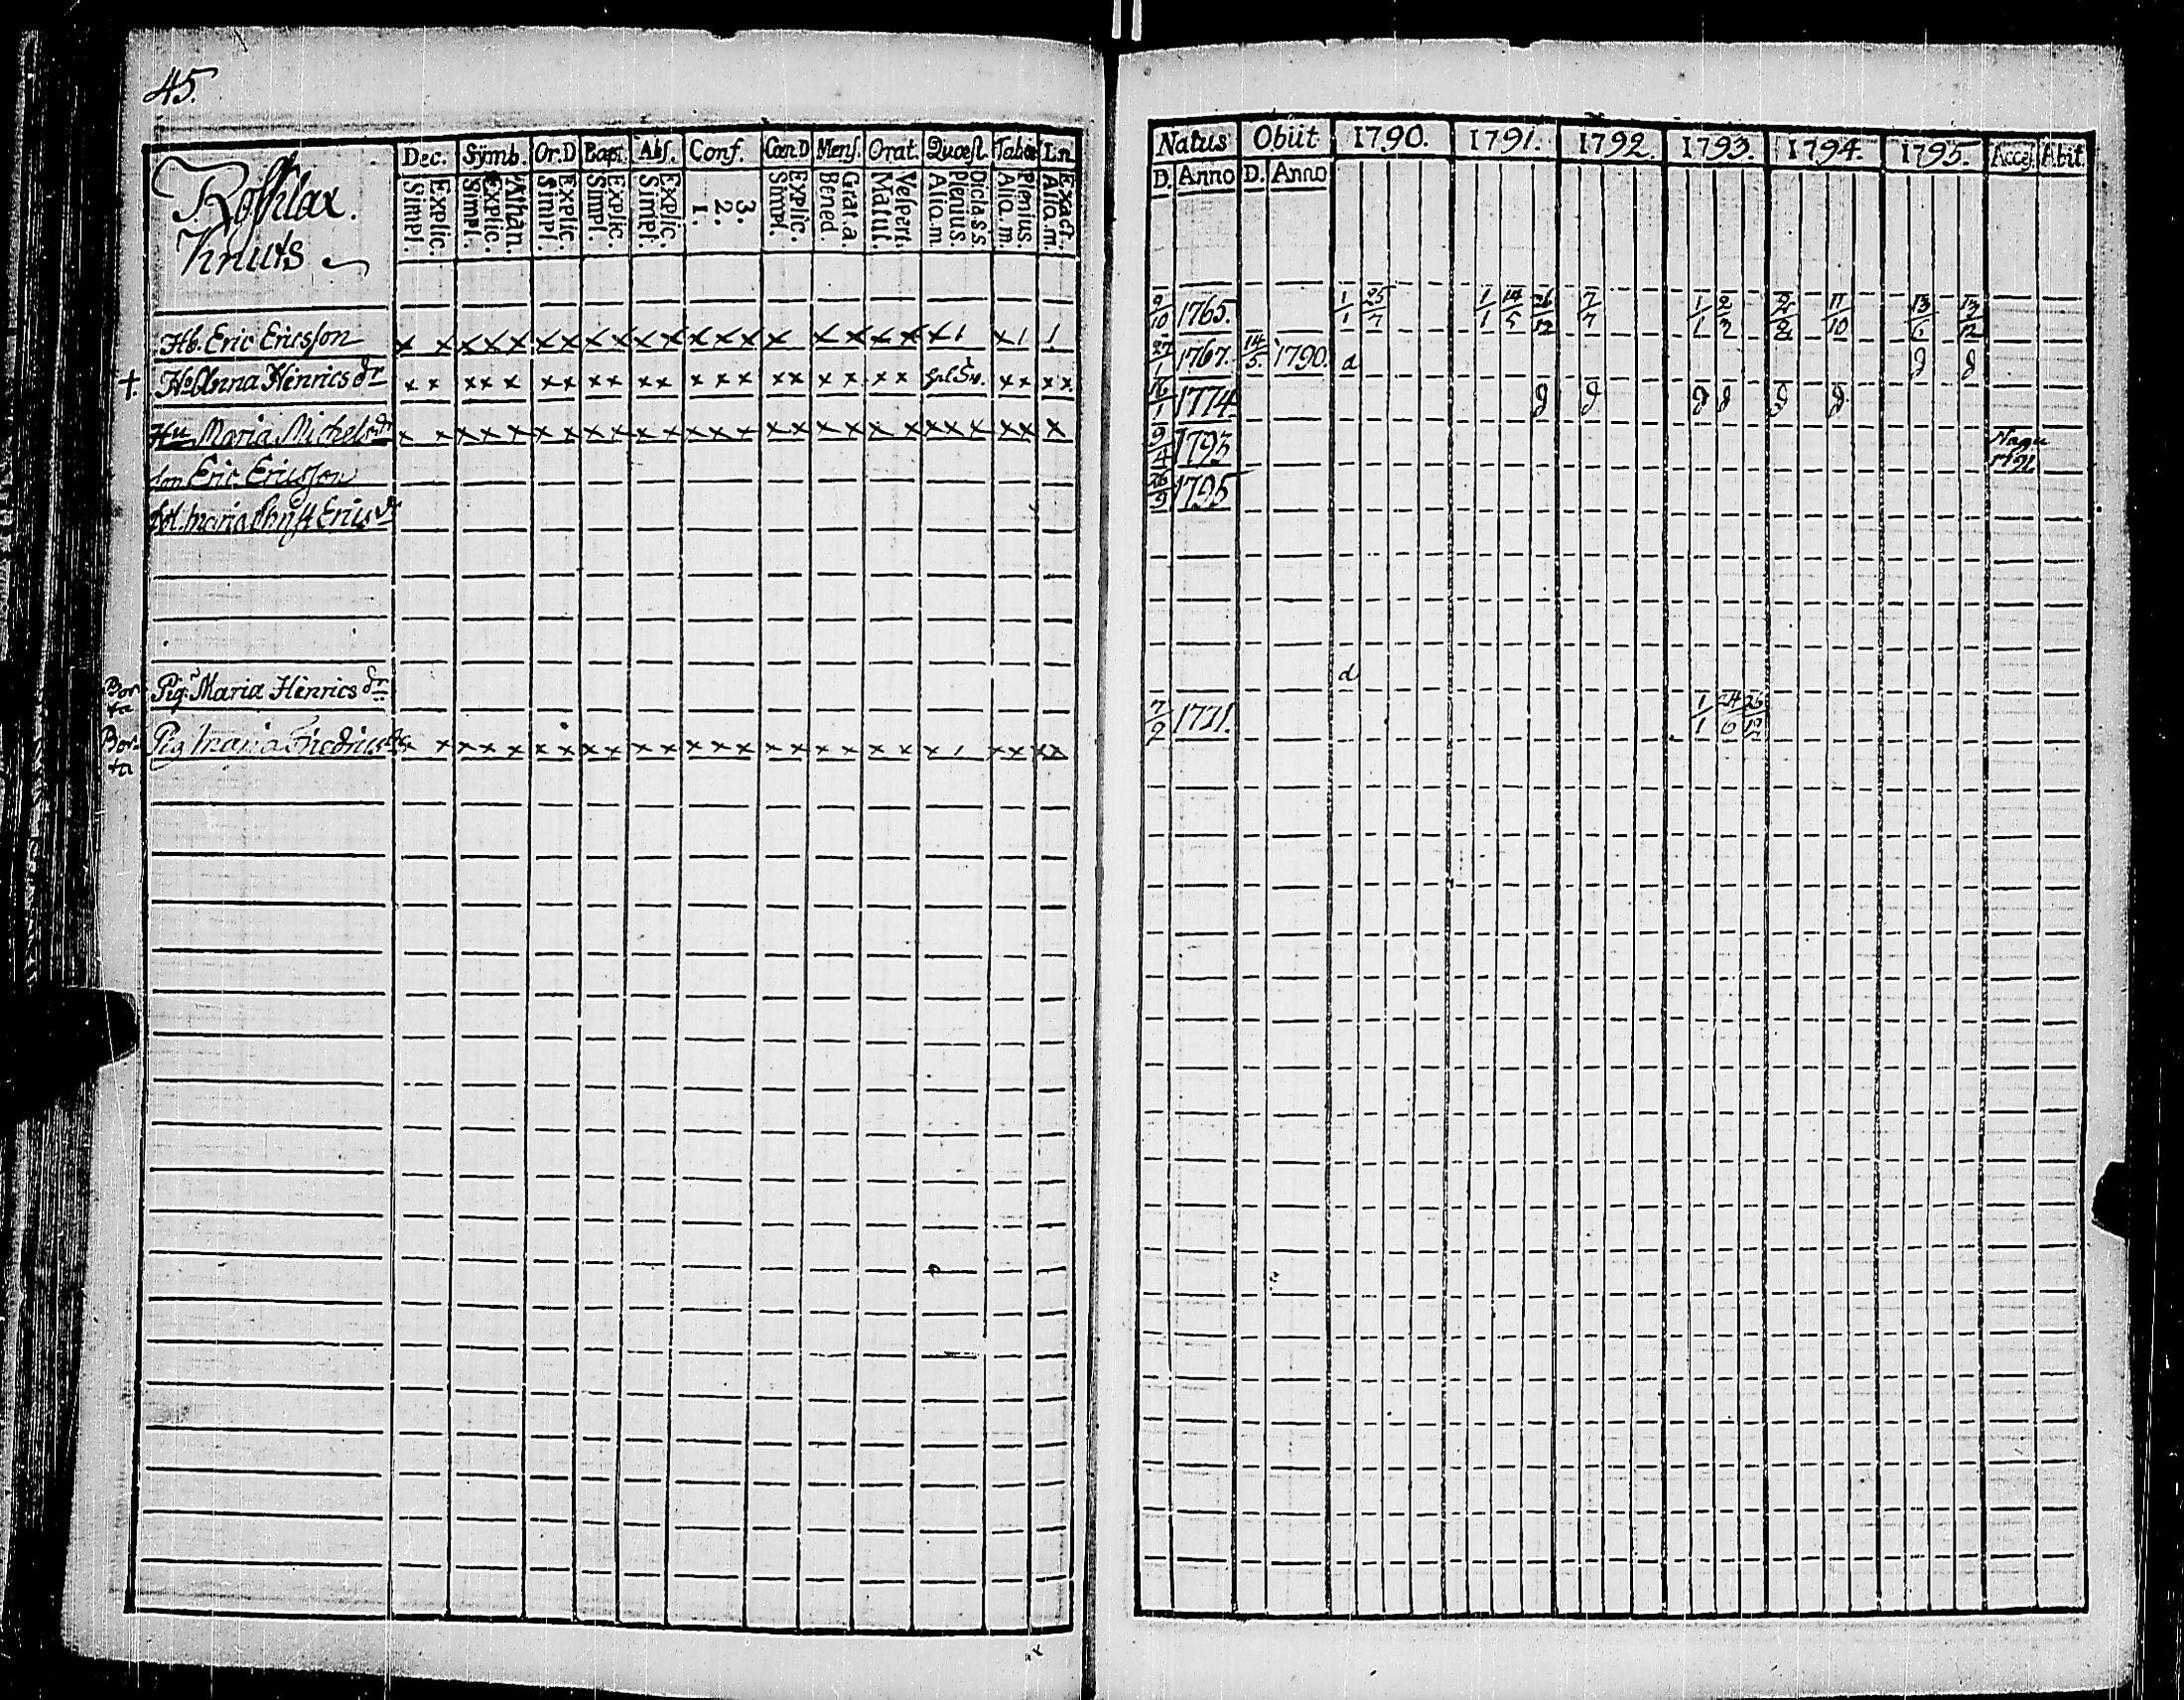 45.
Rofslax.
Knuts
Dec. Symb. Or.D Bapt. Abs. Conf. Cœn.D Mens. Orat. Quæst. Tabœ In.
Explic. Simpl. Athan. Explic. Simpl. Explic. Simpl. Explic. Simpl. Explic. Simpl. 3. 2. 1. Explic. Simpl. Grat.a. Bened. Vespert. Matut. Dicta.s.s. Plenius. Aliq.m. Plenius. Aliq.m. Exact. Aliq.m.
Hb. Eric Ericsson x x x x x x x x x x x x x x x x x x x x 1 x 1 1
+. Ho Anna Henrics dr x x x x x x x x x x x x x x x x x x x x x x x
Hu Maria Michelsdr x x x x x x x x x x x x x x x x x x x x x x x x x x
Son Eric Ericsson
Maria Christ Ericsdr
Bor ta Pig. Maria Henrics dr
Bor ta Pig Maria x x x x x x x x x x x x x x x x x x x x x x x
Natus Obiit 1790. 1791. 1792. 1793. 1794. 1795. Acces. Abit.
D. Anno D. Anno
9/10 1765. 1/1 25/7 1/1 14/5 26/12 7/7 1/1 2/2 11/10 13/12
27/1 1767. 14/5. 1790. d g g
16/1 1774. g g g g g g
9/4 1793 Nagu 1791
26/9 1795
d
7/2 1771. 1/1 24/6 26/12